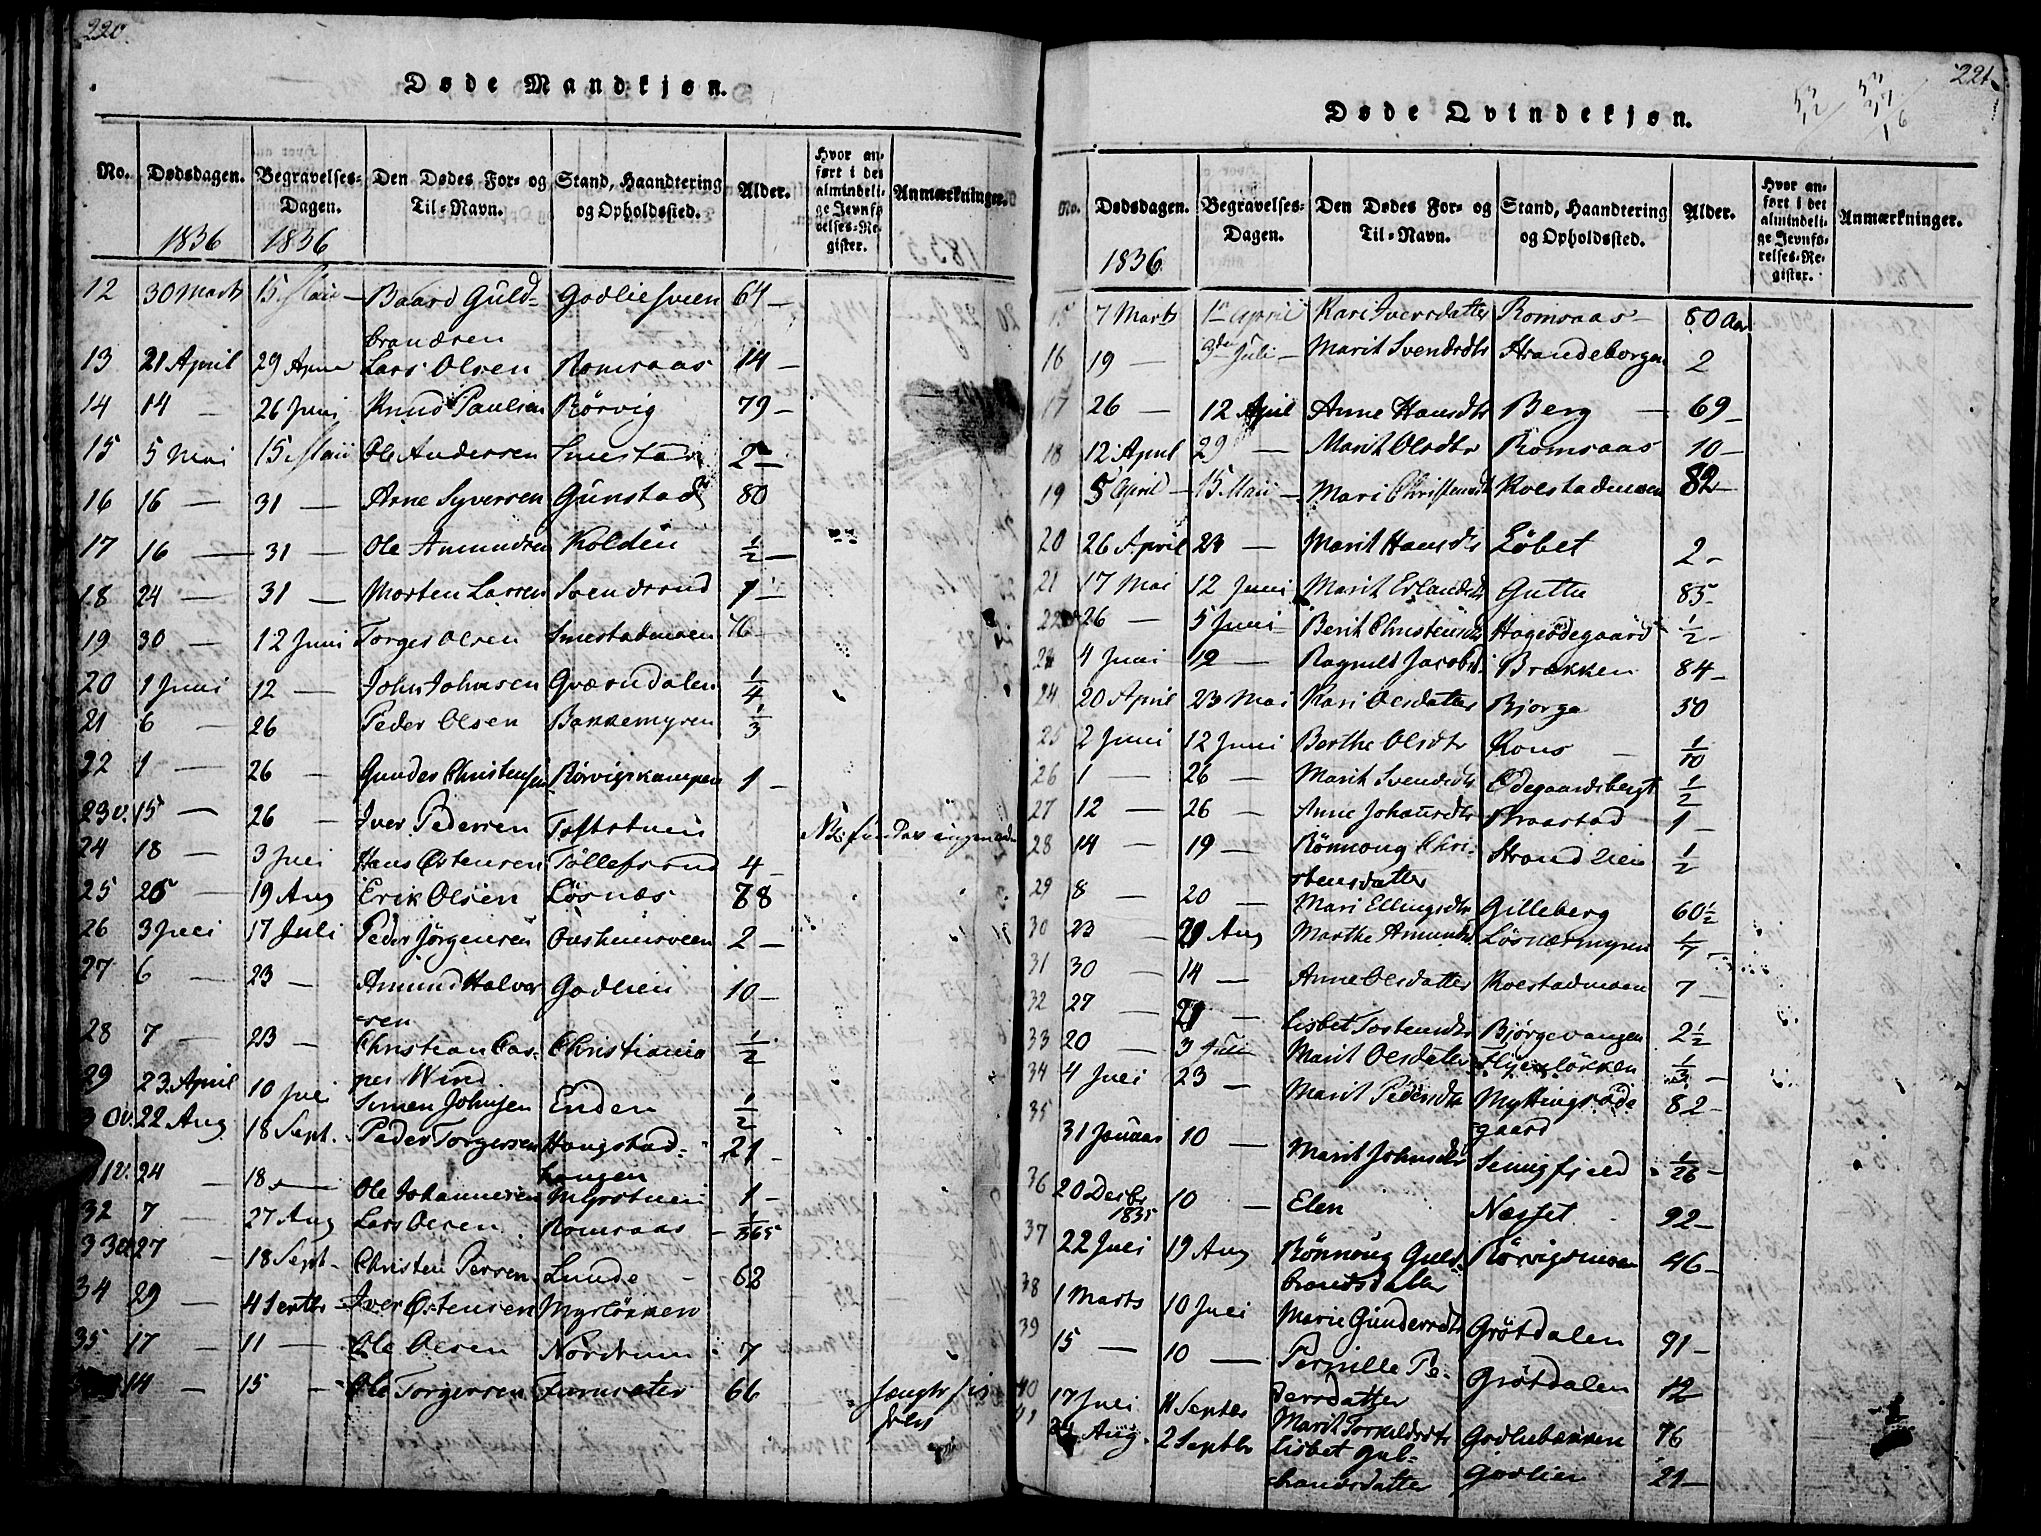 220.
Døde Mandkjøn.
No. Dødsdagen. Begravelses-Dagen. Den Dødes For- og Til-Navn. Stand, Haandtering og Opholdssted. Alder. Hvor anført i det almindelige Jevnførelses-Register. Anmærkninger.
1836 1836
12 30 Marts 15 Maii Baard Guld- Godliesveen 64
brandsen
13 21 April 29 April Lars Olsen Romsaas 14
14 14 26 Juni Knud Paulsen Rörvig 79
15 5 Mai 15 Maii Ole Andersen Smestad 2
16 16 31 Arne Syversen Gunstad 80
17 16 31 Ole Amundsen Kolden ½
18 24 31 Morten Larsen Svendsrud 1
19 30 12 Juni Torger Olsen Smestadmoen
20 1 Juni 12 John Johnsen Gværndalen ¼
21 6 26 Peder Olsen Bakkemyren ⅓
22 1 26 Gunder Christensen Rörvigskampen 1
23 15 26 Iver Pedersen Toftstuen
24 18 3 Juli Hans Østensen Tollefsrud 4
25 26 19 Aug Erik Olsen Løsnæs 78
26 3 Juli 17 Juli Peder Jörgensen 2
27 6 23 Amund Halvor Godlien 10
-sen
28 7 23 Christian Cas- Christiania ½
per Wind
29 23 April 10 Juli Simen Johnsen Enden ½
22 Aug 18 Sept. Peder Torgersen Hougstad- 21
haugen
24 18 Ole Johannesen Myrstuen 1
32 7 27 Aug Lars Olsen Romsaas 1/365
33 27 18 Sept. Christen Persen Lunde 62
34 29 4 Septbr Iver Østensen Myrløkken
35 17 11 Ole Olsen Nordrum 7
14 15 Ole Torgersen Furusæter 66
221.
Døde Qvindekjøn.
No. Dødsdagen. Begravelses-Dagen. Den Dødes For- og Til-Navn. Stand, Haandtering og Opholdssted. Alder. Hvor anført i det almindelige Jevnførelses-Register. Anmærkninger.
1836
15 7 Marts 1 April Kari Iversdatter Romsaas 80 Aar
16 19 3 Juli Marit Svendsdtr Strandeborgen 2
17 26 12 April Anne Hansdtr Berg 69
18 12 April 29 Marit Olsdtr Romsaas 10
19 5 April 15 Maii Mari Christensdtr Kolstadmoen 82
20 26 April 23 Marit Hansdtr Løbet 2
21 17 Mai 12 Juni Marit Erlandsdtr Guttu 85
22 26 5 Juni Berit Christensdtr Hageödegaard ½
23 4 Juni 12 Ragnild Jacobsd Brækken 84
24 20 April 23 Mai Kari Olsdatter Bjørge 30
25 2 Juni 12 Juni Berthe Olsdtr 1/10
26 1 26 Marit Svendsdtr Ødegaardsberget ½
27 12 26 Anne Johansdtr Praastad 1
28 14 19 Rønnoug Chri- Strandlien ½
stensdatter
29 8 20 Mari Ellingsdtr Gilleberg 60½
30 23 21 Aug Marthe Amundsd Løsnæsmyren 1/7
31 30 14 Anne Olsdatter Kolstadmoen 7
32 27 21 Lisbet Tostensdtr Bjørgevangen 2½
33 20 3 Juli Marit Olsdatter ⅓
34 4 Juli 23 Marit Pedersdtr Myttingsøde- 82
gaard
35 31 Januar 10 Marit Johnsdtr Semmigfjeld 1/26
36 20 Decbr 1835 10 Elen Næsset 92
37 22 Juli 19 Aug Rønnoug Guld- Rörvigsmoen 46
brandsdatter
38 1 Marts 10 Juli Marie Gundersdtr Grötdalen 91
39 15 10 Pernille Pe- Grötdalen 12
dersdatter
40 17 Juli 11 Septbr Marit Torkildsdtr Godliebakken 76
Aug. 2 Septbr Lisbet Gul- Godlien 21
brandsdatter